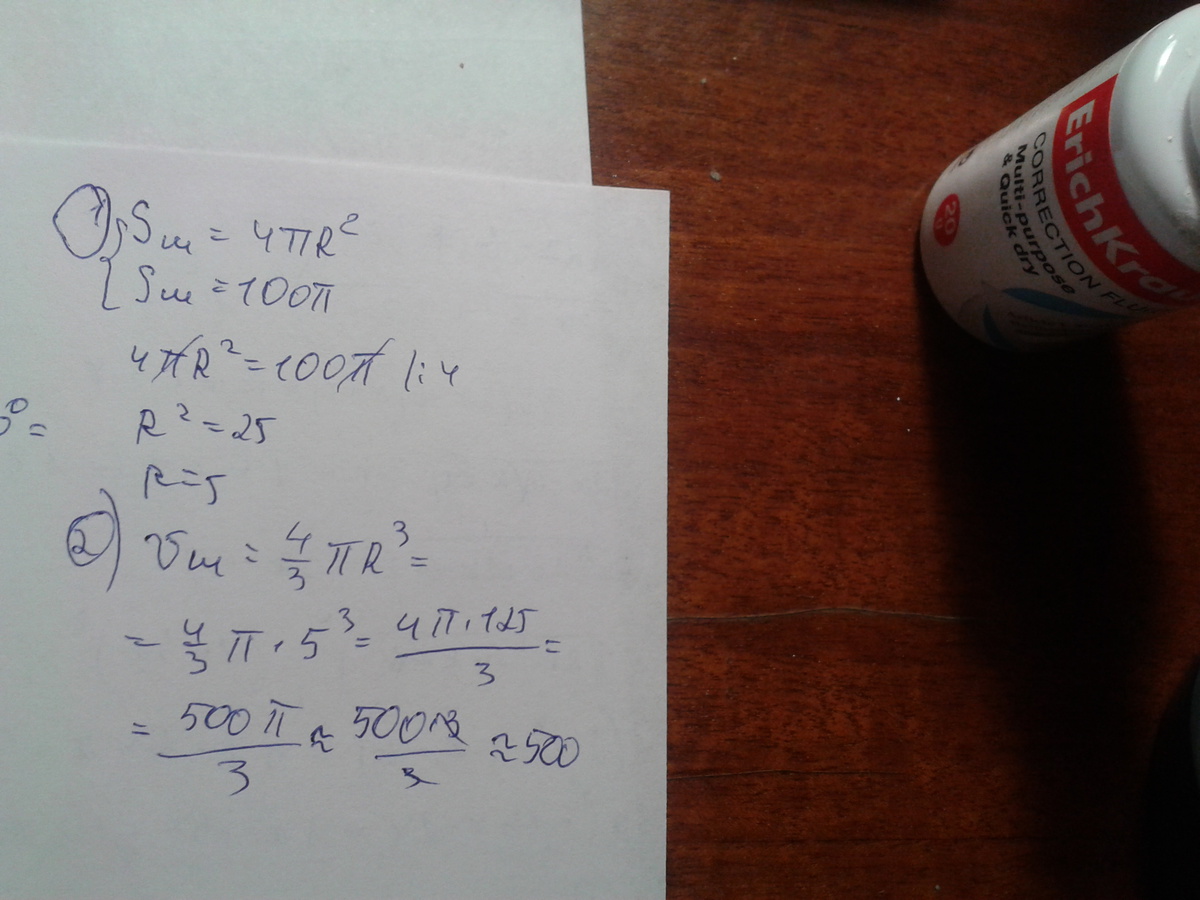 1) { Sш = 4πR²
Sш = 100π
4πR² = 100π |:4
R² = 25
R = 5
2) Vш = 4/3 πR³ =
= 4/3 π · 5³ = 4π·125/3 =
= 500π/3 ≈ 500·3/3 ≈ 500
ErichKra
CORRECTION FLU
Multi-purpose
& Quick dry
20